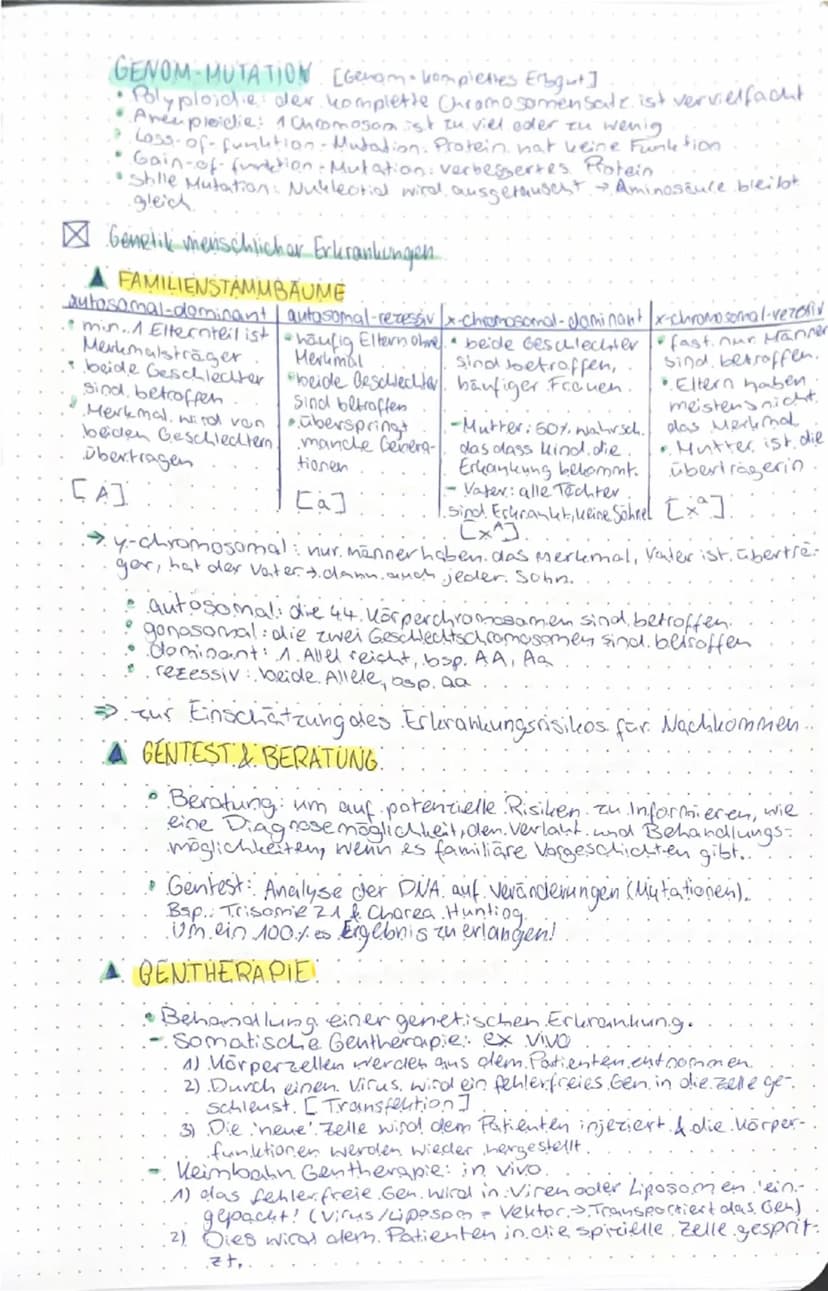 GENOM-MUTATION [Genom = komplettes Erbgut]
• Polyploidie: der komplette Chromosomensatz ist vervielfacht
• Aneuploidie: 1 Chromosom ist zu viel oder zu wenig
• Loss-of-funktion-Mutation: Protein hat keine Funktion
• Gain-of-funktion-Mutation: verbessertes Protein
• stille Mutation: Nukleotid wird ausgetauscht → Aminosäure bleibt
gleich
☒ Genetik menschlicher Erkrankungen
▲ FAMILIENSTAMMBÄUME
autosomal-dominant | autosomal-rezessiv | x-chromosomal-dominant | x-chromosomal-rezessiv
• min. 1 Elternteil ist
Merkmalsträger
• beide Geschlechter
sind betroffen
• Merkmal wird von
beiden Geschlechtern
übertragen
[A]
• häufig Eltern ohne
Merkmal
• beide Geschlechter
sind betroffen
• überspringt
manche Genera-
tionen
[a]
• beide Geschlechter
sind betroffen,
häufiger Frauen
- Mutter: 50% wahrsch.
das dass Kind die
Erkrankung bekommt.
- Vater: alle Töchter
sind Erkrankt, keine Söhne
[xᴬ]
• fast nur Männer
sind betroffen.
• Eltern haben
meistens nicht
das Merkmal
• Mutter ist die
überträgerin
[xᵃ]
→ y-chromosomal: nur männer haben das Merkmal, Vater ist überträ-
ger, hat der Vater → dann auch jeder Sohn.
• autosomal: die 44 Körperchromosomen sind betroffen.
• gonosomal: die zwei Geschlechtschromosomen sind betroffen
• dominant: 1 Allel reicht, bsp. AA, Aa
• rezessiv: beide Allele, bsp. aa
⇒ zur Einschätzung des Erkrankungsrisikos für Nachkommen
▲ GENTEST & BERATUNG
• Beratung: um auf potenzielle Risiken zu Informieren, wie
eine Diagnosemöglichkeit, den Verlauf und Behandlungs-
möglichkeiten, wenn es familiäre Vorgeschichten gibt.
• Gentest: Analyse der DNA auf Veränderungen (Mutationen).
Bsp.: Trisomie 21 & Chorea Hunting
Um ein 100%es Ergebnis zu erlangen!
▲ GENTHERAPIE
• Behandlung einer genetischen Erkrankung.
- Somatische Gentherapie: ex vivo
1) Körperzellen werden aus dem Patienten entnommen
2) Durch einen Virus wird ein fehlerfreies Gen in die Zelle ge-
schleust. [Transfektion]
3) Die 'neue' Zelle wird dem Patienten injeziert & die Körper-
funktionen werden wieder hergestellt.
- Keimbahn Gentherapie: in vivo
1) das fehlerfreie Gen wird in Viren oder Liposomen 'ein-
gepackt' (Virus/Liposom = Vektor → Transportiert das Gen)
2) Dies wird dem Patienten in die spizielle Zelle gesprit-
zt.